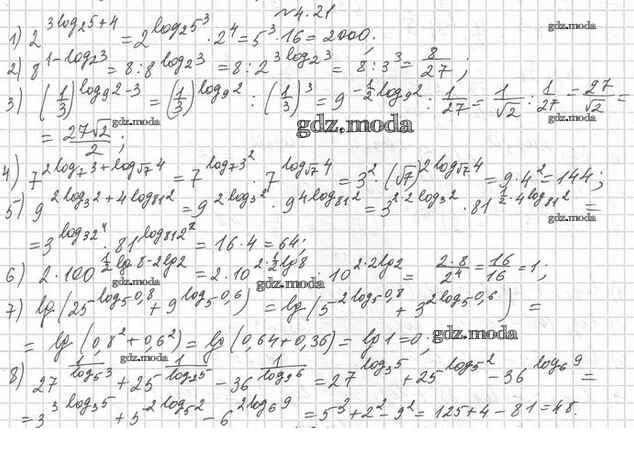 №4.21
gdz.moda
1) 2^{3log₂5+4} = 2^{log₂5³} · 2⁴ = 5³ · 16 = 2000.
2) 8^{1-log₂3} = 8 : 8^{log₂3} = 8 : 2^{3log₂3} = 8 : 3³ = 8/27 ;
3) (1/3)^{log₉2-3} = (1/3)^{log₉2} : (1/3)³ = 9^{-1/2 log₉2} : 1/27 = 1/√2 : 1/27 = 27/√2 =
gdz.moda
gdz.moda
gdz.moda
= 27√2/2 ;
gdz.moda
4) 7^{2log₇3+log_{√7}4} = 7^{log₇3²} · 7^{log_{√7}4} = 3² · (√7)^{2log_{√7}4} = 9 · 4² = 144 ;
5) 9^{2log₃2+4log₈₁2} = 9^{2log₃2} · 9^{4log₈₁2} = 3^{2·2log₃2} · 81^{1/2·4log₈₁2} =
gdz.moda
= 3^{log₃2⁴} · 81^{log₈₁2²} = 16 · 4 = 64;
6) 2 · 100^{1/2 lg8-2lg2} = 2 · 10^{2·1/2 lg8} : 10^{2·2lg2} = 2·8/2⁴ = 16/16 = 1 ;
gdz.moda
gdz.moda
7) lg(25^{log₅0,8} + 9^{log₃0,6}) = lg(5^{2log₅0,8} + 3^{2log₃0,6}) =
= lg(0,8² + 0,6²) = lg(0,64 + 0,36) = lg1 = 0;
gdz.moda
gdz.moda
8) 27^{1/log₅3} + 25^{1/log₂5} - 36^{1/log₉6} = 27^{log₃5} + 25^{log₅2} - 36^{log₆9} =
= 3^{3log₃5} + 5^{2log₅2} - 6^{2log₆9} = 5³ + 2² - 9² = 125 + 4 - 81 = 48.